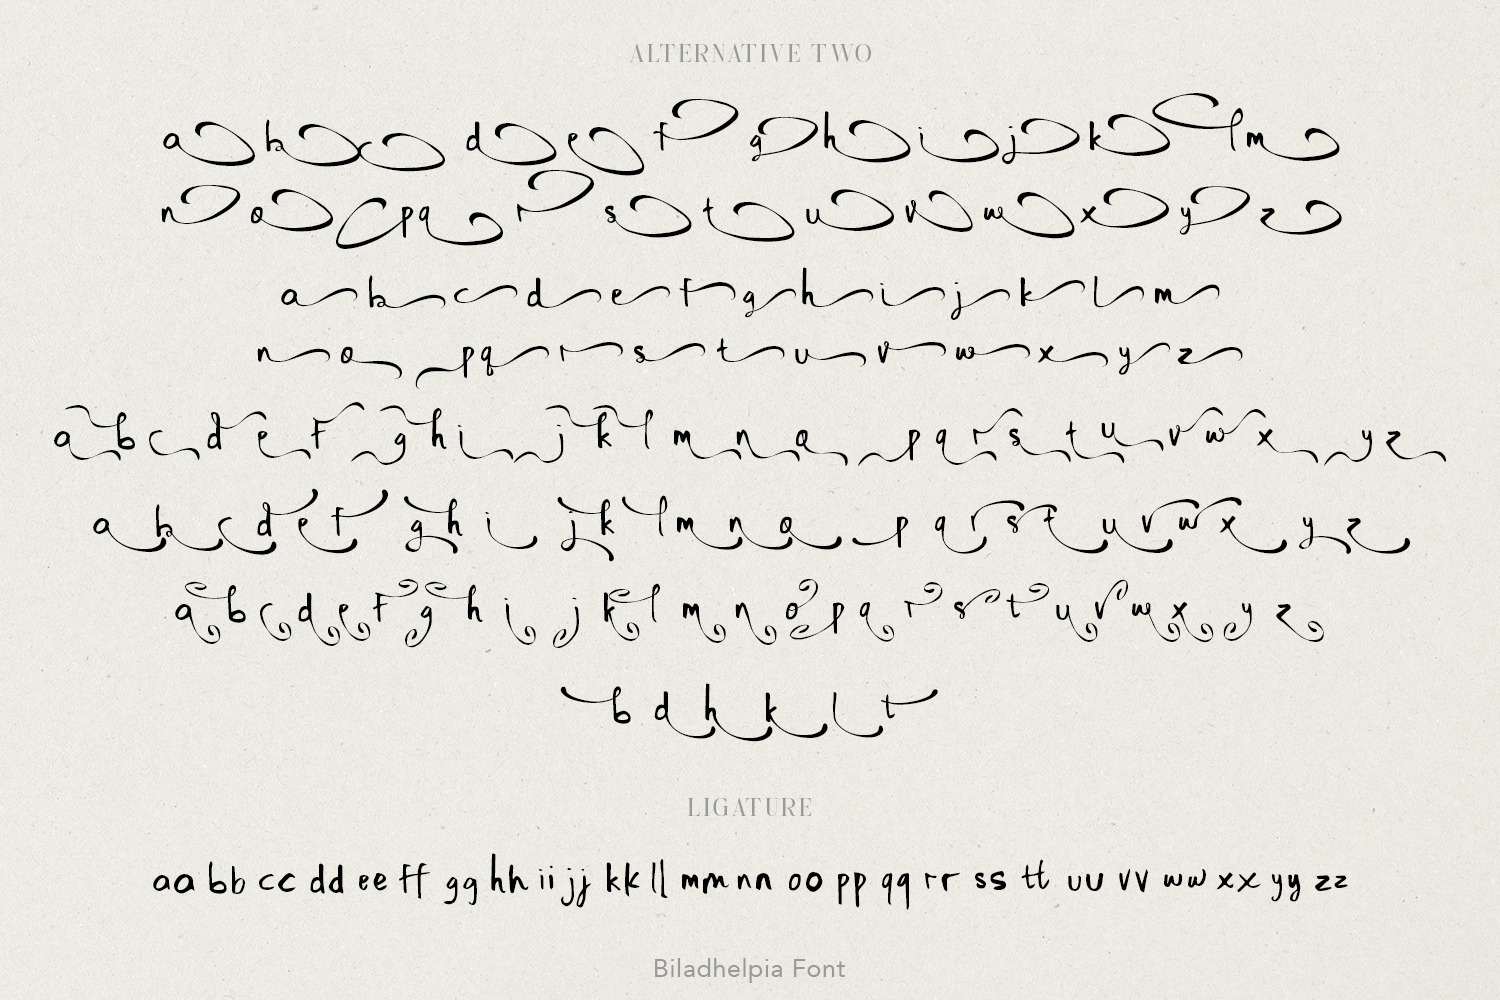 ALTERNATIVE TWO
a b c d e f g h i j k l m
n o p q r s t u v w x y z
a b c d e f g h i j k l m
n o p q r s t u v w x y z
a b c d e f g h i j k l m n o p q r s t u v w x y z
a b c d e f g h i j k l m n o p q r s t u v w x y z
a b c d e f g h i j k l m n o p q r s t u v w x y z
b d h k l t
LIGATURE
aa bb cc dd ee ff gg hh ii jj kk ll mm nn oo pp qq rr ss tt uu vv ww xx yy zz
Biladhelpia Font